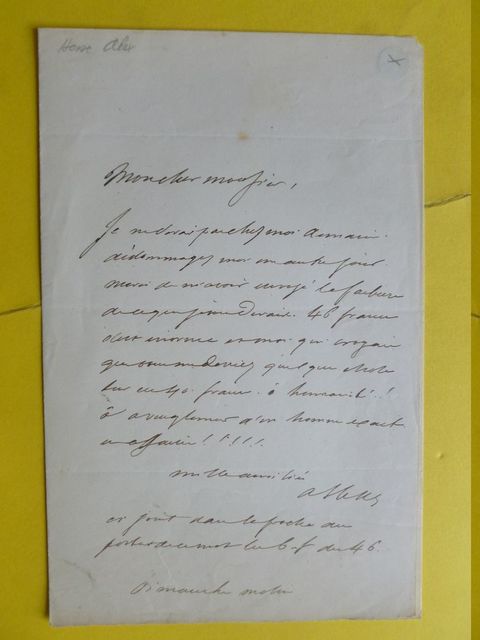 Mon cher monsieur,
Je ne serai pas chez moi demain.
dédommagez moi un autre jour
merci de m'avoir envoyé la facture
de ce que je vous devais. 46 francs
c'est énorme et moi qui croyais
que vous me deviez quelque chose
sur ces 40 francs. ô humanité!..!
ô aveuglement d'un homme exact
en affaires!!!!!
mille amitiés
ci joint dans la poche du
porteur de ce mot les 46.
Dimanche matin